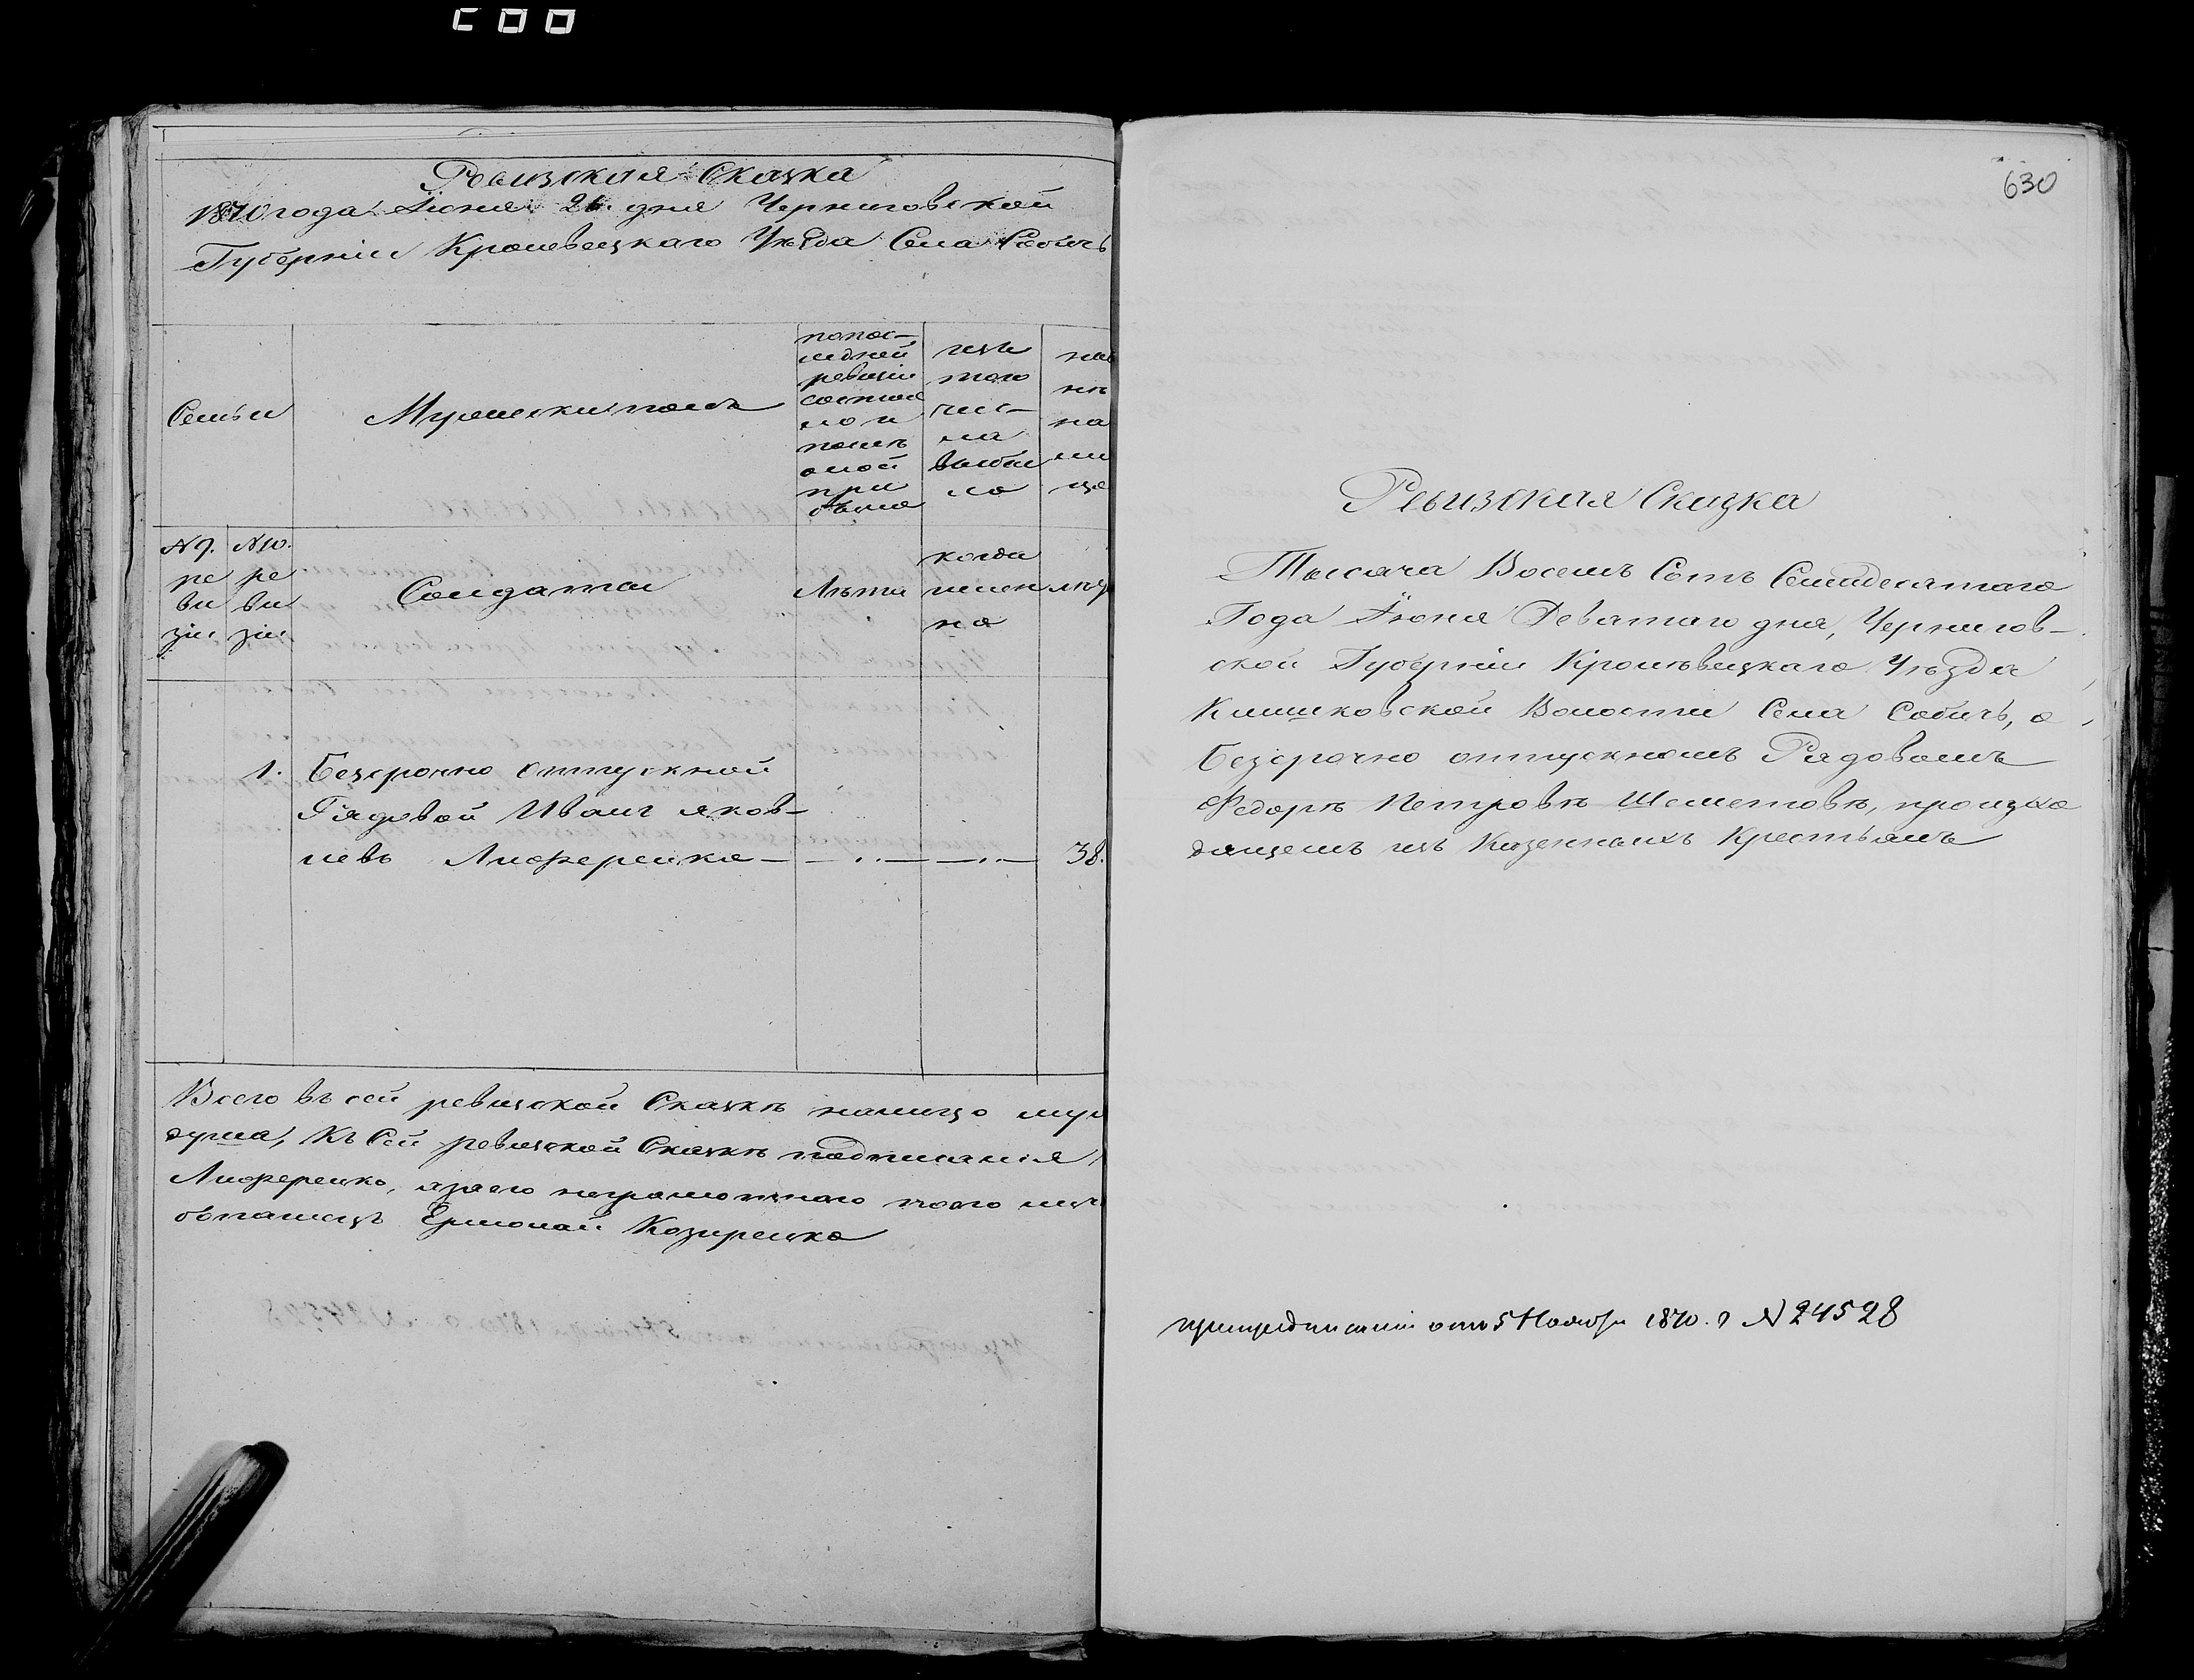 Ревизская Сказка
1870 года Іюня 26 дня Черниговской
Губерніи Кролевецкаго Уѣзда Села Собичь
Семьи
Мужеский полъ
по пос-
лѣдней
ревизіи
состояло
и
послѣ
оной
при
было
изъ
того
чис-
ла
выбы
ло
на
ли
цо
№ 9. № 10.
ре ре
ви ви
зіи зіи
Солдаты
Лѣта
когда
имен
но
лѣт
1. Безсрочно отпускной
Рядовой Иванъ Яков-
левъ Лисференко - - - 38.
Всего въ сей ревизской Сказкѣ налицо муж
душа, Къ Сей ревизской Сказкѣ
Лисференко, а за его неграмотнаго
Ермолай Козиренко
630
Ревизская Сказка
Тысяча Восемь Сотъ Семидесятаго
Года Іюня Девятаго дня, Чернигов-
ской Губерніи Кролѣвецкаго Уѣзда
Клишковской Волости Села Собичь, о
безсрочно отпускномъ Рядовомъ
Федорѣ Петровѣ Шеметовѣ, происхо
дящемъ изъ Казенныхъ Крестьянъ
при предписаніи отъ 5 Ноября 1870. г № 24528